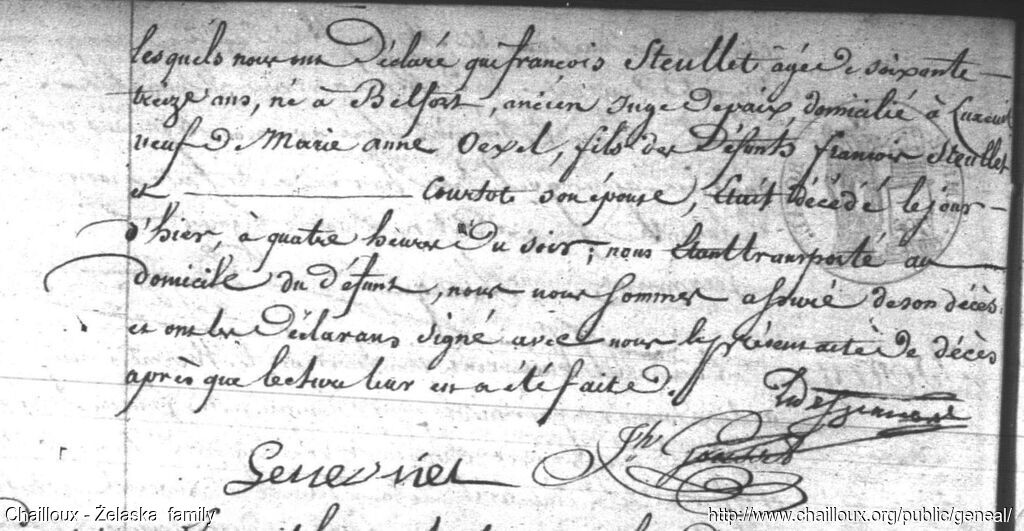 lesquels nous ont Déclaré que françois Steullet agée de soixante
treize ans, né à Belfort, ancien Juge De paix, domicilié à Luxeuil
veuf De Marie anne Oexel, fils des Défunts françois Steullet
et Courtot son épouse, était décédé le jour
d'hier, à quatre heures Du soir; nous étant transporté au
domicile du défunt, nous nous sommes assuré de son décès
et ont les Déclarans signé avec nous le présent acte de décès
après que lecture leur en a été faite.
Jh
Chailloux - Żelaska family
http://www.chailloux.org/public/geneal/